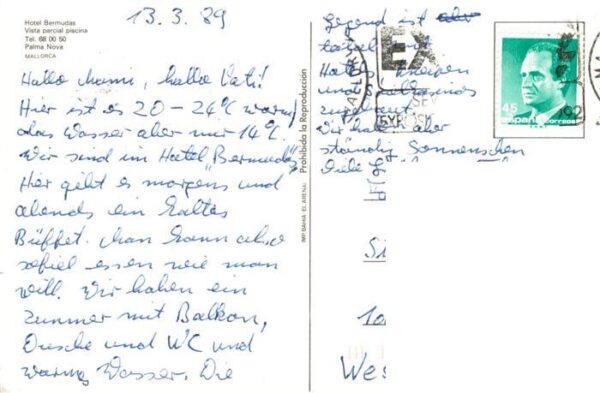 Hotel Bermudas
Vista parcial piscina
Tel. 68 00 50
Palma Nova
MALLORCA
13.3.89
Hallo Mami, hallo Vati!
Hier ist es 20 – 24°C warm
das Wasser aber nur 14°C.
Wir sind im Hotel "Bermudas"
Hier gibt es morgens und
abends ein kaltes
Büffet. Man kann also
soviel essen wie man
will. Wir haben ein
Zimmer mit Balkon,
Dusche und WC und
warmes Wasser. Die
IMP. BAHIA (EL ARENAL)
Prohibida la Reproducción
Gegend ist
total mit
Hotels, Kneipen
und
Wir haben aber
ständig Sonnenschein
Viele
EX
SEV
45
españa CORREOS
Si
10
Wes